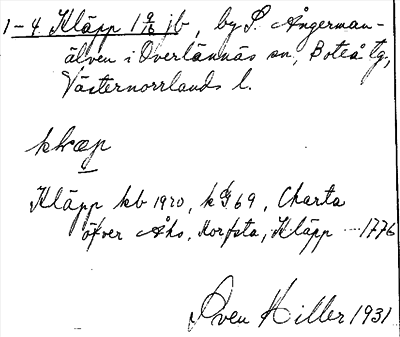 1-4 Kläpp 1 9/16 jb, by S. Ångerman-
älven i Överlännäs sn, Boteå tg,
Västernorrlands l.
kläp
Kläpp kb 1920, k 69, Charta
öfver Åhs, Korfsta, Kläpp --- 1776
Sven Hiller 1931